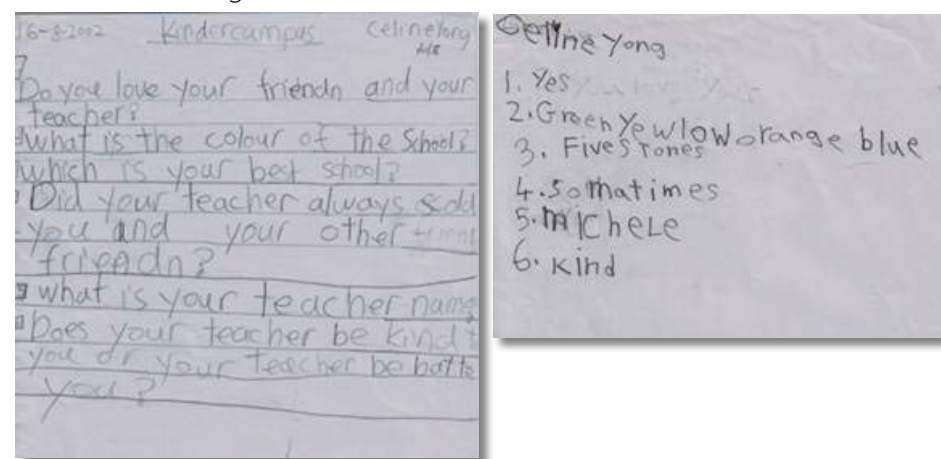 16-8-2002 Kindercampus Celine Yong
Do you love your friendn and your
teacher?
What is the colour of the School?
which is your best school?
Did your teacher always scold
you and your other
friendn?
what is your teacher name
Does your teacher be kind t
you or your teacher be batte
you?
Celine Yong
1. Yes
2. Green Yewlow orange blue
3. Five Stones
4. Somatimes
5. michele
6. kind